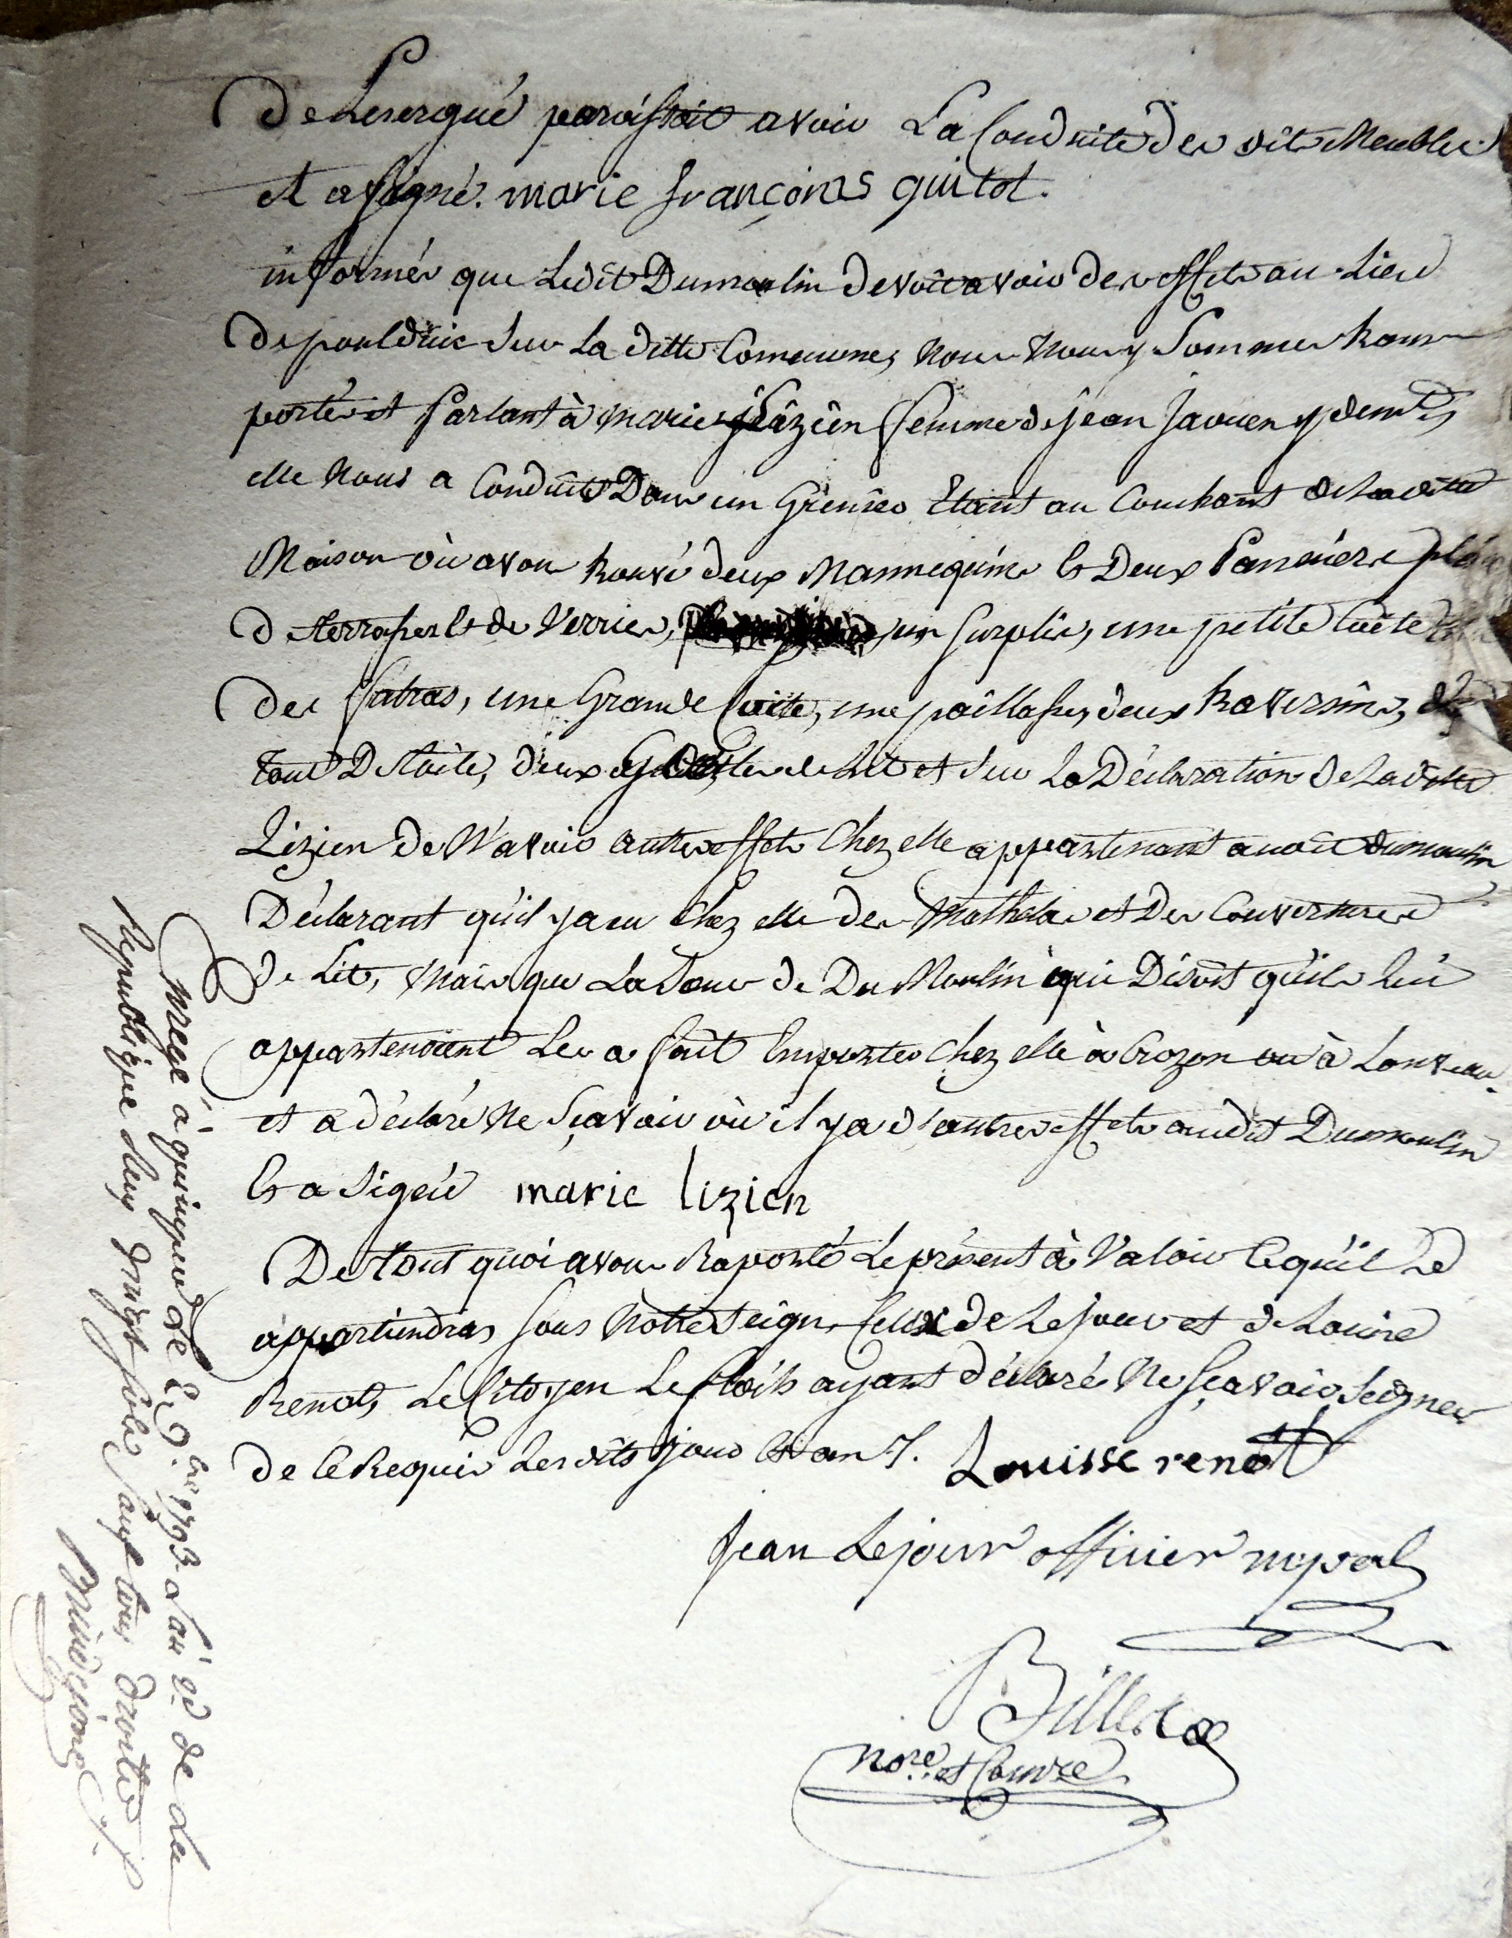 de Leserqué paroissoit avoir La Conduite des dits Meubles
et a signé. marie françoies guitot.
informés que Ledit Dumoulin devoit avoir des effets au Lieu
de poulduic sur La ditte Commune, nous nous y sommes trans
portés et parlant à marie Lizien femme de jean jaouen y demte,
elle nous a Conduits Dans un Grenier Etant au Couchant de La ditte
Maison où avons trouvé deux Mannequins & Deux Panniers plein
de terrasses & de Verries, un surplis, une petite Coëte
des fatras, une Grande Coite, une paillasse, deux traversins, le
tout De toile, deux de Lit et sur La Déclaration de Laditte
Lizien de N'avoir autres effets Chez elle appartenant audit dumoulin
Déclarant qu'il y a eu Chez elle des Mathelas et Des Couvertures
de Lit, Mais que La soeur de Du Moulin qui Disoit qu'ils lui
appartenoient Les a fait Emporter Chez elle à Crozon ou à Lanveau.
et a déclaré Ne Sçavoir où il y a d'autres effets audit Dumoulin
& a Signé marie lizien
De tout quoi avons Raporté Le présent à Valoir Ce qu'il
appartiendra, sous Notre Seign, Ceux de Lejour et de Louise
Renot, Le Citoyen Le floïh ayant déclaré Ne Sçavoir Seigner
de Ce Requis Lesdits jour & an /.
Louisse renot
Jean Lejour officier mpal
Billette
nore. et Comre
Enregé á quimper Le E 9.bre 1793 L'an 2d de La
République Reçu vingt sols sauf tous droits